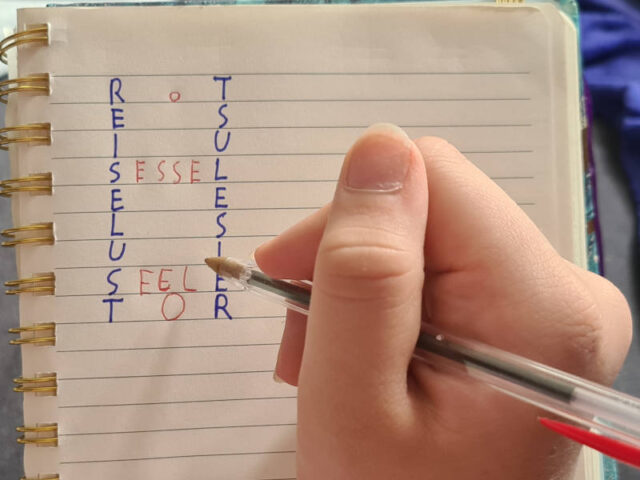 R o T
E S
I U
S ESSE L
E E
L S
U I
S EEL E
T O R